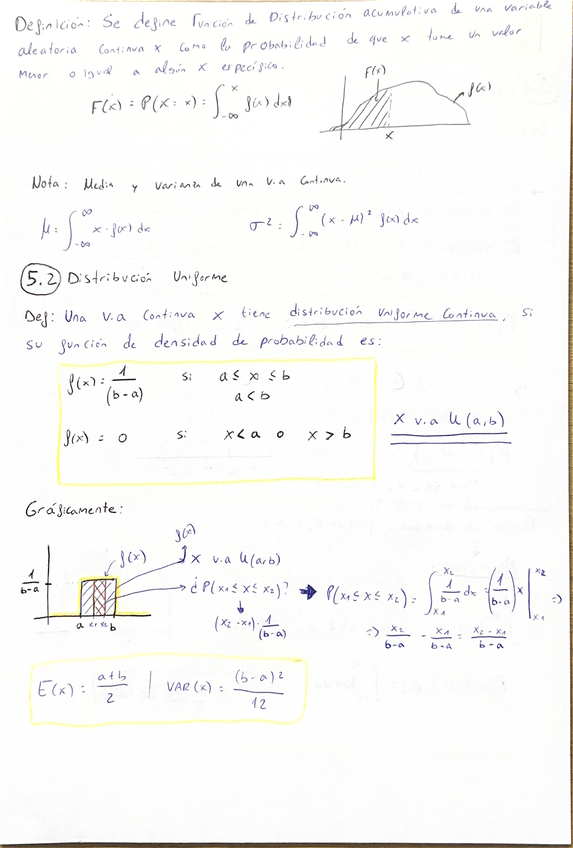 Definición: Se define Función de Distribución acumulativa de una variable
aleatoria continua x como la probabilidad de que x tome un valor
menor o igual a algún x específico.
F(x) = P(X = x) = ∫_{-∞}^{x} f(x) dx
F(x)
f(x)
x
Nota: Media y varianza de una v.a continua.
μ = ∫_{-∞}^{∞} x · f(x) dx
σ² = ∫_{-∞}^{∞} (x - μ)² f(x) dx
5.2 Distribución Uniforme
Def: Una v.a continua x tiene distribución uniforme continua, si
su función de densidad de probabilidad es:
f(x) = 1/(b-a) si a ≤ x ≤ b
a < b
f(x) = 0 si x < a o x > b
X v.a U(a,b)
Gráficamente:
f(x)
1/(b-a)
f(x)
a x1 x2 b
X v.a U(a,b)
¿P(x1 ≤ x ≤ x2)?
(x2 - x1) · 1/(b-a)
P(x1 ≤ x ≤ x2) = ∫_{x1}^{x2} 1/(b-a) dx = (1/(b-a)) x |_{x1}^{x2} =>
=> x2/(b-a) - x1/(b-a) = (x2 - x1)/(b-a)
E(x) = (a+b)/2 | VAR(x) = (b-a)²/12